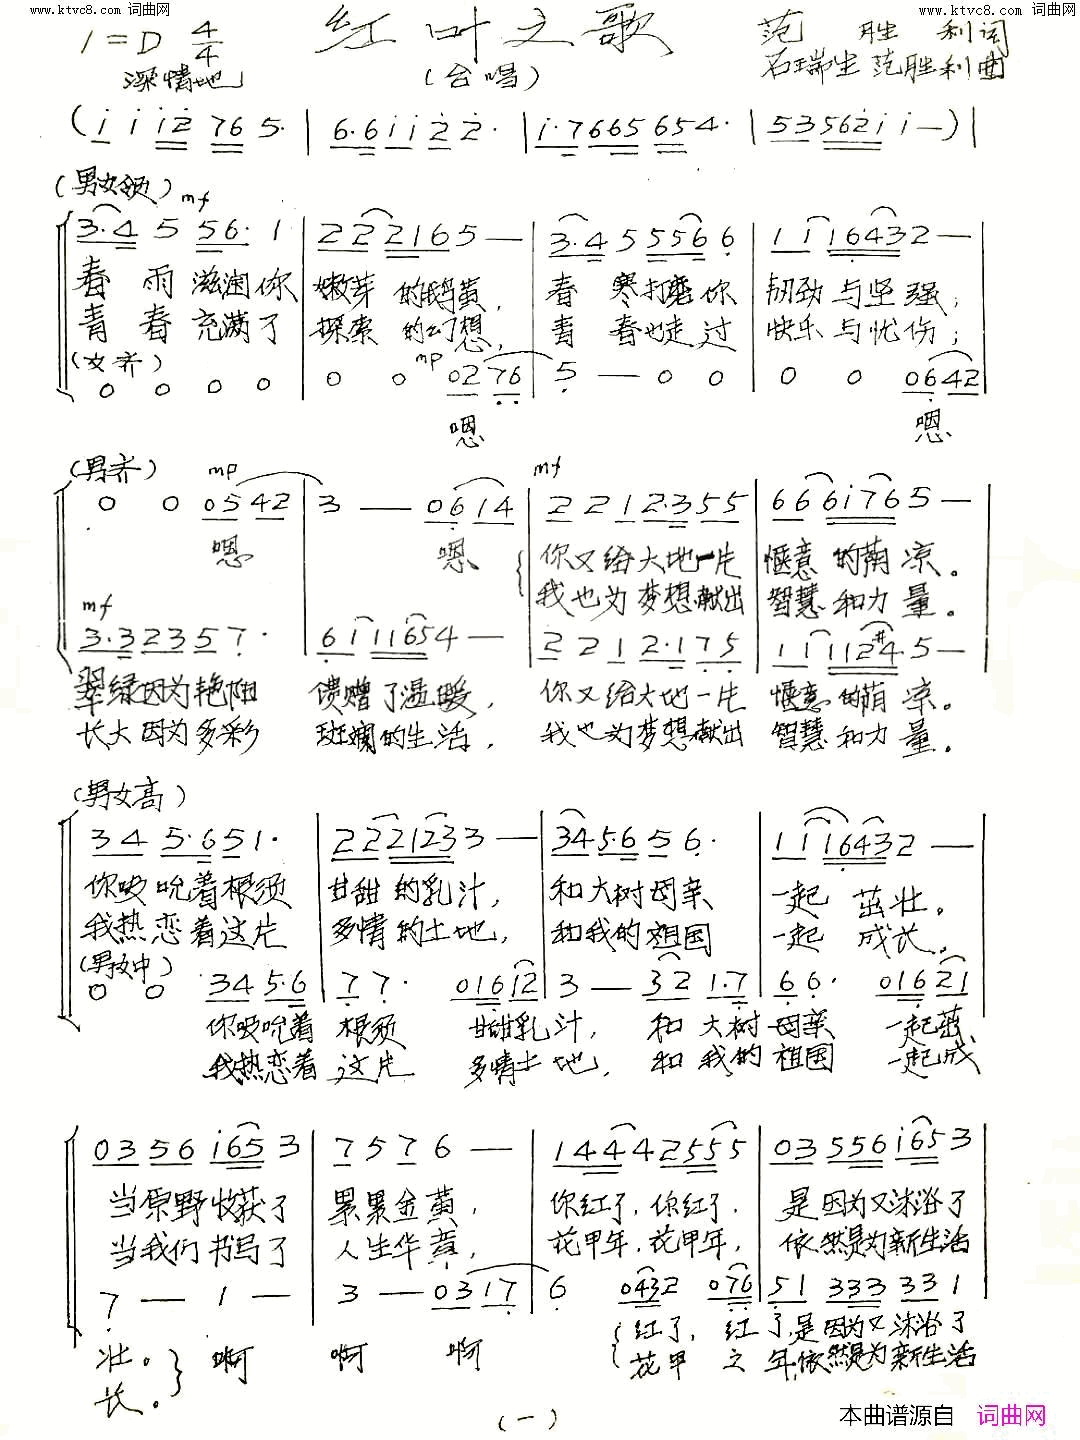 www.ktvc8.com 词曲网
www.ktvc8.com 词曲网
1=D 4/4 红叶之歌 范胜利词
深情地 (合唱) 石瑞生 范胜利曲
(i i i2 76 5· | 6·6 i i 2 2· | i·7665 654· | 53562i i—)|
(男女领) mf
3·4 5 56· 1 | 2 2 2 2165— | 3·4 5 5566 | 1 1 16432—
春雨滋润你 嫩芽的鹅黄, 春寒打磨你 韧劲与坚强;
青春充满了 探索的幻想, 青春也走过 快乐与忧伤;
(女齐) mp
0 0 0 0 | 0 0 0276 | 5—0 0 | 0 0 0642
嗯 嗯
(男齐) mp mf
0 0 0542 | 3——0614 | 2 2 1 2·3 5 5 | 6 6 6i765—
嗯 嗯 你又给大地一片 惬意的荫凉。
我也为梦想献出 智慧和力量。
mf
3·3 2 3 5 7· | 6 1 11654— | 2 2 1 2·1 7 5 | 1 1 112#4·5—
翠绿因为艳阳 馈赠了温暖, 你又给大地一片 惬意的荫凉。
长大因为多彩 斑斓的生活, 我也为梦想献出 智慧和力量。
(男女高)
34 5·6 51· | 2 2 21233— | 34 5·6 5 6· | 1 1 16432—
你吸吮着根须 甘甜的乳汁, 和大树母亲 一起茁壮。
我热恋着这片 多情的土地, 和我的祖国 一起成长。
(男女中)
0 0 34 5·6 | 7 7· 01612 | 3—32 1·7 | 6 6· 01621
你吸吮着 根须 甘甜乳汁, 和大树母亲 一起茁
我热恋着 这片 多情土地, 和我的祖国 一起成
03 56 i65 3 | 7 5 7 6—— | 144 42555 | 03 556 i65 3
当原野收获了 累累金黄, 你红了,你红了, 是因为又沐浴了
当我们书写了 人生华章, 花甲年,花甲年, 依然是为新生活
7—1— | 3——0317 | 6 0432 076 | 51 333 33 1
壮。 啊 啊 啊 红了,红了,是因为又沐浴了
长。 花甲之年,依然是为新生活
(一)
本曲谱源自 词曲网